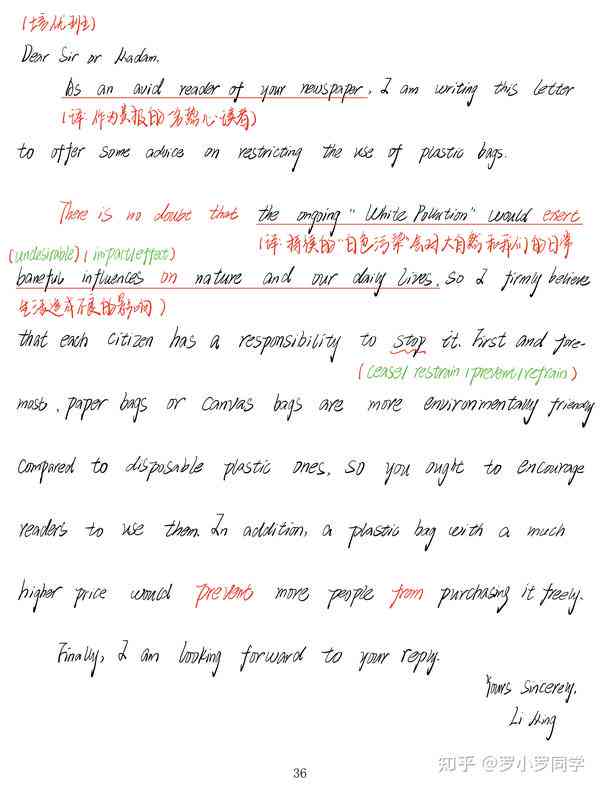 (培优班)
Dear Sir or Madam,
As an avid reader of your newspaper, I am writing this letter
(译:作为贵报的忠心读者)
to offer some advice on restricting the use of plastic bags.
There is no doubt that the ongoing "White Pollution" would exert
(undesirable) (impact/effect) (译:持续的"白色污染"会对大自然和我们的日常
baneful influences on nature and our daily lives, so I firmly believe
生活造成不良的影响)
that each citizen has a responsibility to stop it. First and fore-
(cease/restrain/prevent/refrain)
most, paper bags or canvas bags are more environmentally friendly
compared to disposable plastic ones, so you ought to encourage
readers to use them. In addition, a plastic bag with a much
higher price would prevent more people from purchasing it freely.
Finally, I am looking forward to your reply.
Yours sincerely,
Li Ming
知乎 @罗小罗同学
36